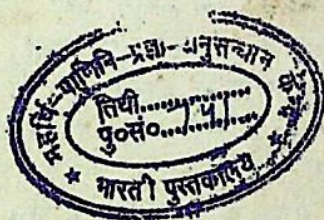 महर्षि-पाणिनि-प्रज्ञा-अनुसन्धान
तिथी..............
पु०सं०...141.......
भारती पुस्तकालय